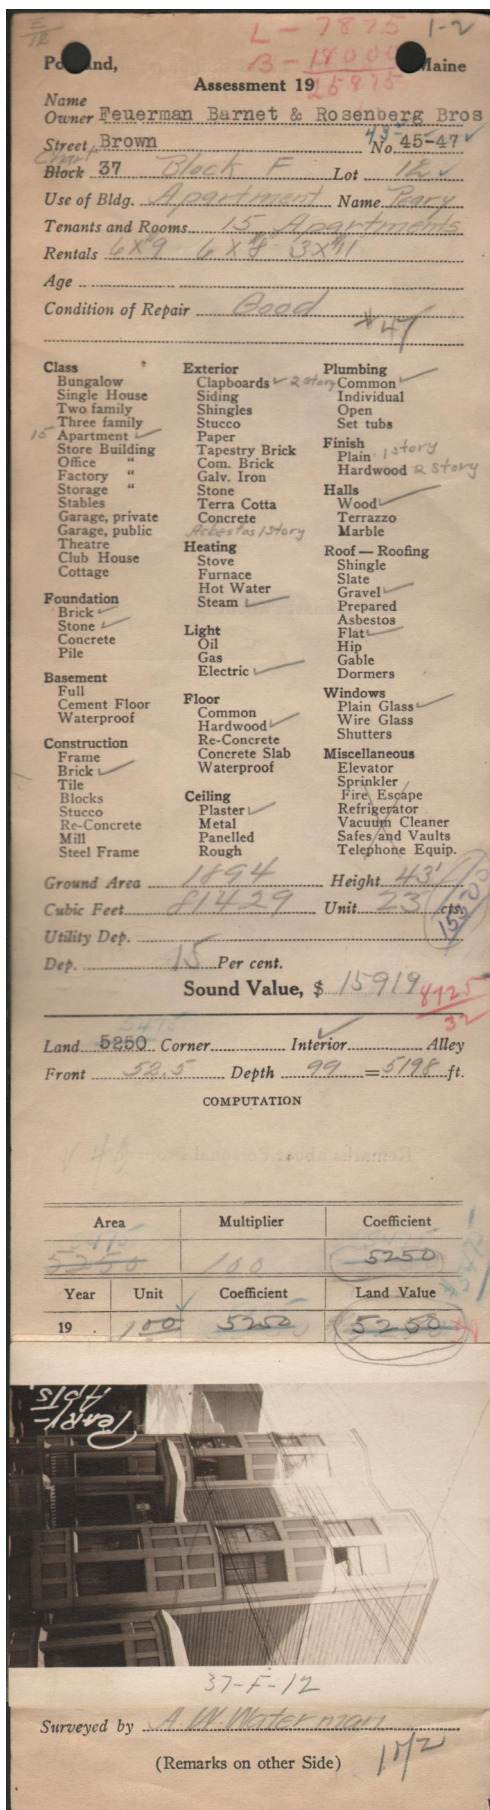 E/12
L - 7875 1-2
B - 18000
Portland, Maine
25875
Assessment 19
Name
Owner Feuerman Barnet & Rosenberg Bros
43-
Street Brown No. 45-47
Chart
Block 37 Block F Lot 12
Use of Bldg. Apartment Name Peary
Tenants and Rooms 15 Apartments
Rentals 6x$9 6x$8 3x$11
Age
Condition of Repair Good
$47
Class
Bungalow
Single House
Two family
Three family
15 Apartment ✓
Store Building
Office "
Factory "
Storage "
Stables
Garage, private
Garage, public
Theatre
Club House
Cottage
Foundation
Brick ✓
Stone ✓
Concrete
Pile
Basement
Full
Cement Floor
Waterproof
Construction
Frame
Brick ✓
Tile
Blocks
Stucco
Re-Concrete
Mill
Steel Frame
Exterior
Clapboards ✓ 2 story
Siding
Shingles
Stucco
Paper
Tapestry Brick
Com. Brick
Galv. Iron
Stone
Terra Cotta
Concrete
Asbestos 1 story
Heating
Stove
Furnace
Hot Water
Steam ✓
Light
Oil
Gas
Electric ✓
Floor
Common
Hardwood ✓
Re-Concrete
Concrete Slab
Waterproof
Ceiling
Plaster ✓
Metal
Panelled
Rough
Plumbing
Common ✓
Individual
Open
Set tubs
Finish
Plain 1 story
Hardwood 2 story
Halls
Wood ✓
Terrazzo
Marble
Roof — Roofing
Shingle
Slate
Gravel ✓
Prepared
Asbestos
Flat ✓
Hip
Gable
Dormers
Windows
Plain Glass ✓
Wire Glass
Shutters
Miscellaneous
Elevator
Sprinkler
Fire Escape
Refrigerator
Vacuum Cleaner
Safes and Vaults
Telephone Equip.
Ground Area 1894 Height 43'
Cubic Feet 81429 Unit 23 cts.
15500
Utility Dep.
Dep. 15 Per cent.
Sound Value, $ 15919
8725
32
5475
Land 5250 Corner Interior ✓ Alley
Front 52.5 Depth 99 = 5198 ft.
COMPUTATION
Area Multiplier Coefficient
5475
5250 100 5250
Year Unit Coefficient Land Value
19 1.00 5250 5250
PEARY-
APTS.
37-F-12
Surveyed by A W Waterman
(Remarks on other Side) 10/2